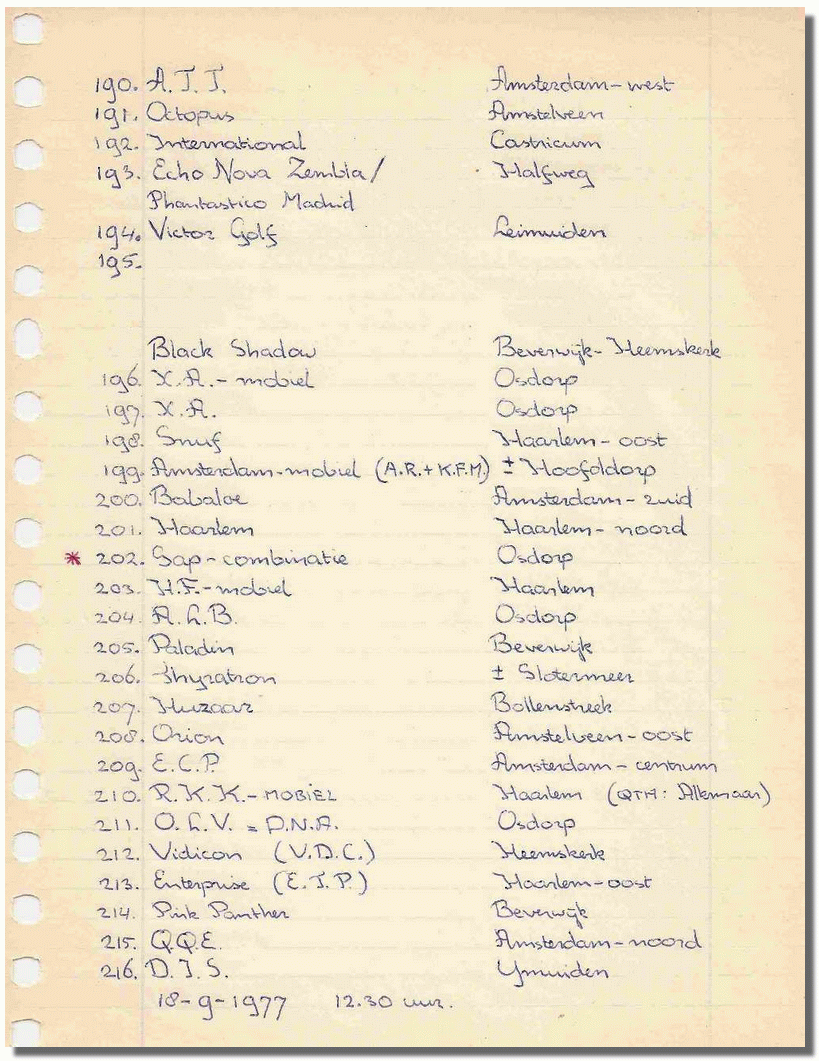 190. A.T.T. Amsterdam-west
191. Octopus Amstelveen
192. International Castricum
193. Echo Nova Zembla/ Halfweg
Phantastico Madrid
194. Victor Golf Leimuiden
195.
Black Shadow Beverwijk-Heemskerk
196. X.A.-mobiel Osdorp
197. X.A. Osdorp
198. Snuf Haarlem-oost
199. Amsterdam-mobiel (A.R.+K.F.M) ± Hoofddorp
200. Babaloe Amsterdam-zuid
201. Haarlem Haarlem-noord
* 202. Sap-combinatie Osdorp
203. H.F.-mobiel Haarlem
204. A.L.B. Osdorp
205. Paladin Beverwijk
206. Thyratron ± Slotermeer
207. Huzaar Bollenstreek
208. Orion Amstelveen-oost
209. E.C.P. Amsterdam-centrum
210. R.K.K.-MOBIEL Haarlem (QTH: Alkmaar)
211. O.L.V. = D.N.A. Osdorp
212. Vidicon (V.D.C.) Heemskerk
213. Enterprise (E.T.P.) Haarlem-oost
214. Pink Panther Beverwijk
215. Q.Q.E. Amsterdam-noord
216. D.J.S. Ymuiden
18-9-1977 12.30 uur.